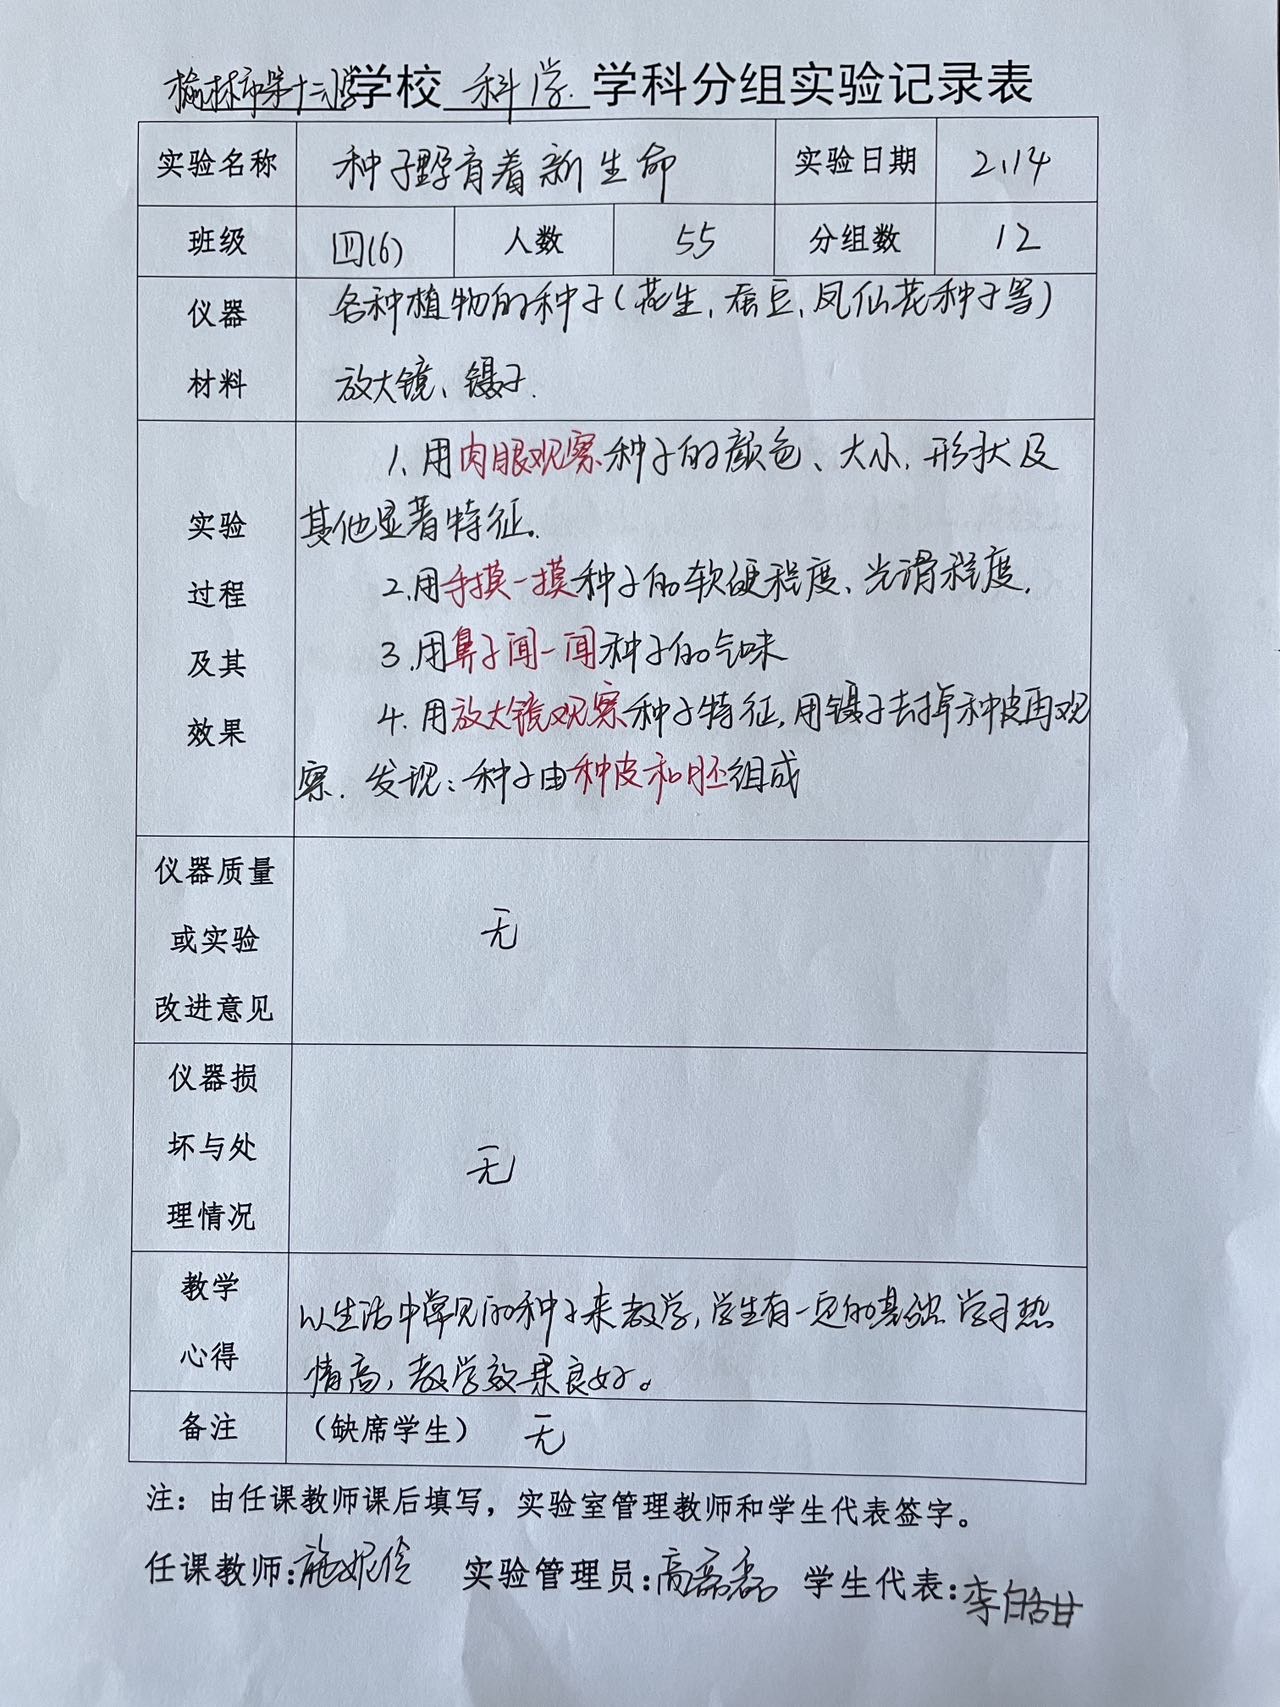 榆林市第十三小学学校 科学 学科分组实验记录表
实验名称 种子孕育着新生命 实验日期 2.14
班级 四(6) 人数 55 分组数 12
仪器材料 各种植物的种子(花生、蚕豆、凤仙花种子等)
放大镜、镊子.
实验过程及其效果 1.用肉眼观察种子的颜色、大小、形状及
其他显著特征.
2.用手摸一摸种子的软硬程度、光滑程度.
3.用鼻子闻一闻种子的气味
4.用放大镜观察种子特征,用镊子去掉种皮再观
察.发现:种子由种皮和胚组成
仪器质量或实验改进意见 无
仪器损坏与处理情况 无
教学心得 以生活中常见的种子来教学,学生有一定的基础 学习热
情高,教学效果良好。
备注 (缺席学生) 无
注:由任课教师课后填写,实验室管理教师和学生代表签字。
任课教师: 实验管理员: 学生代表:李皓甘